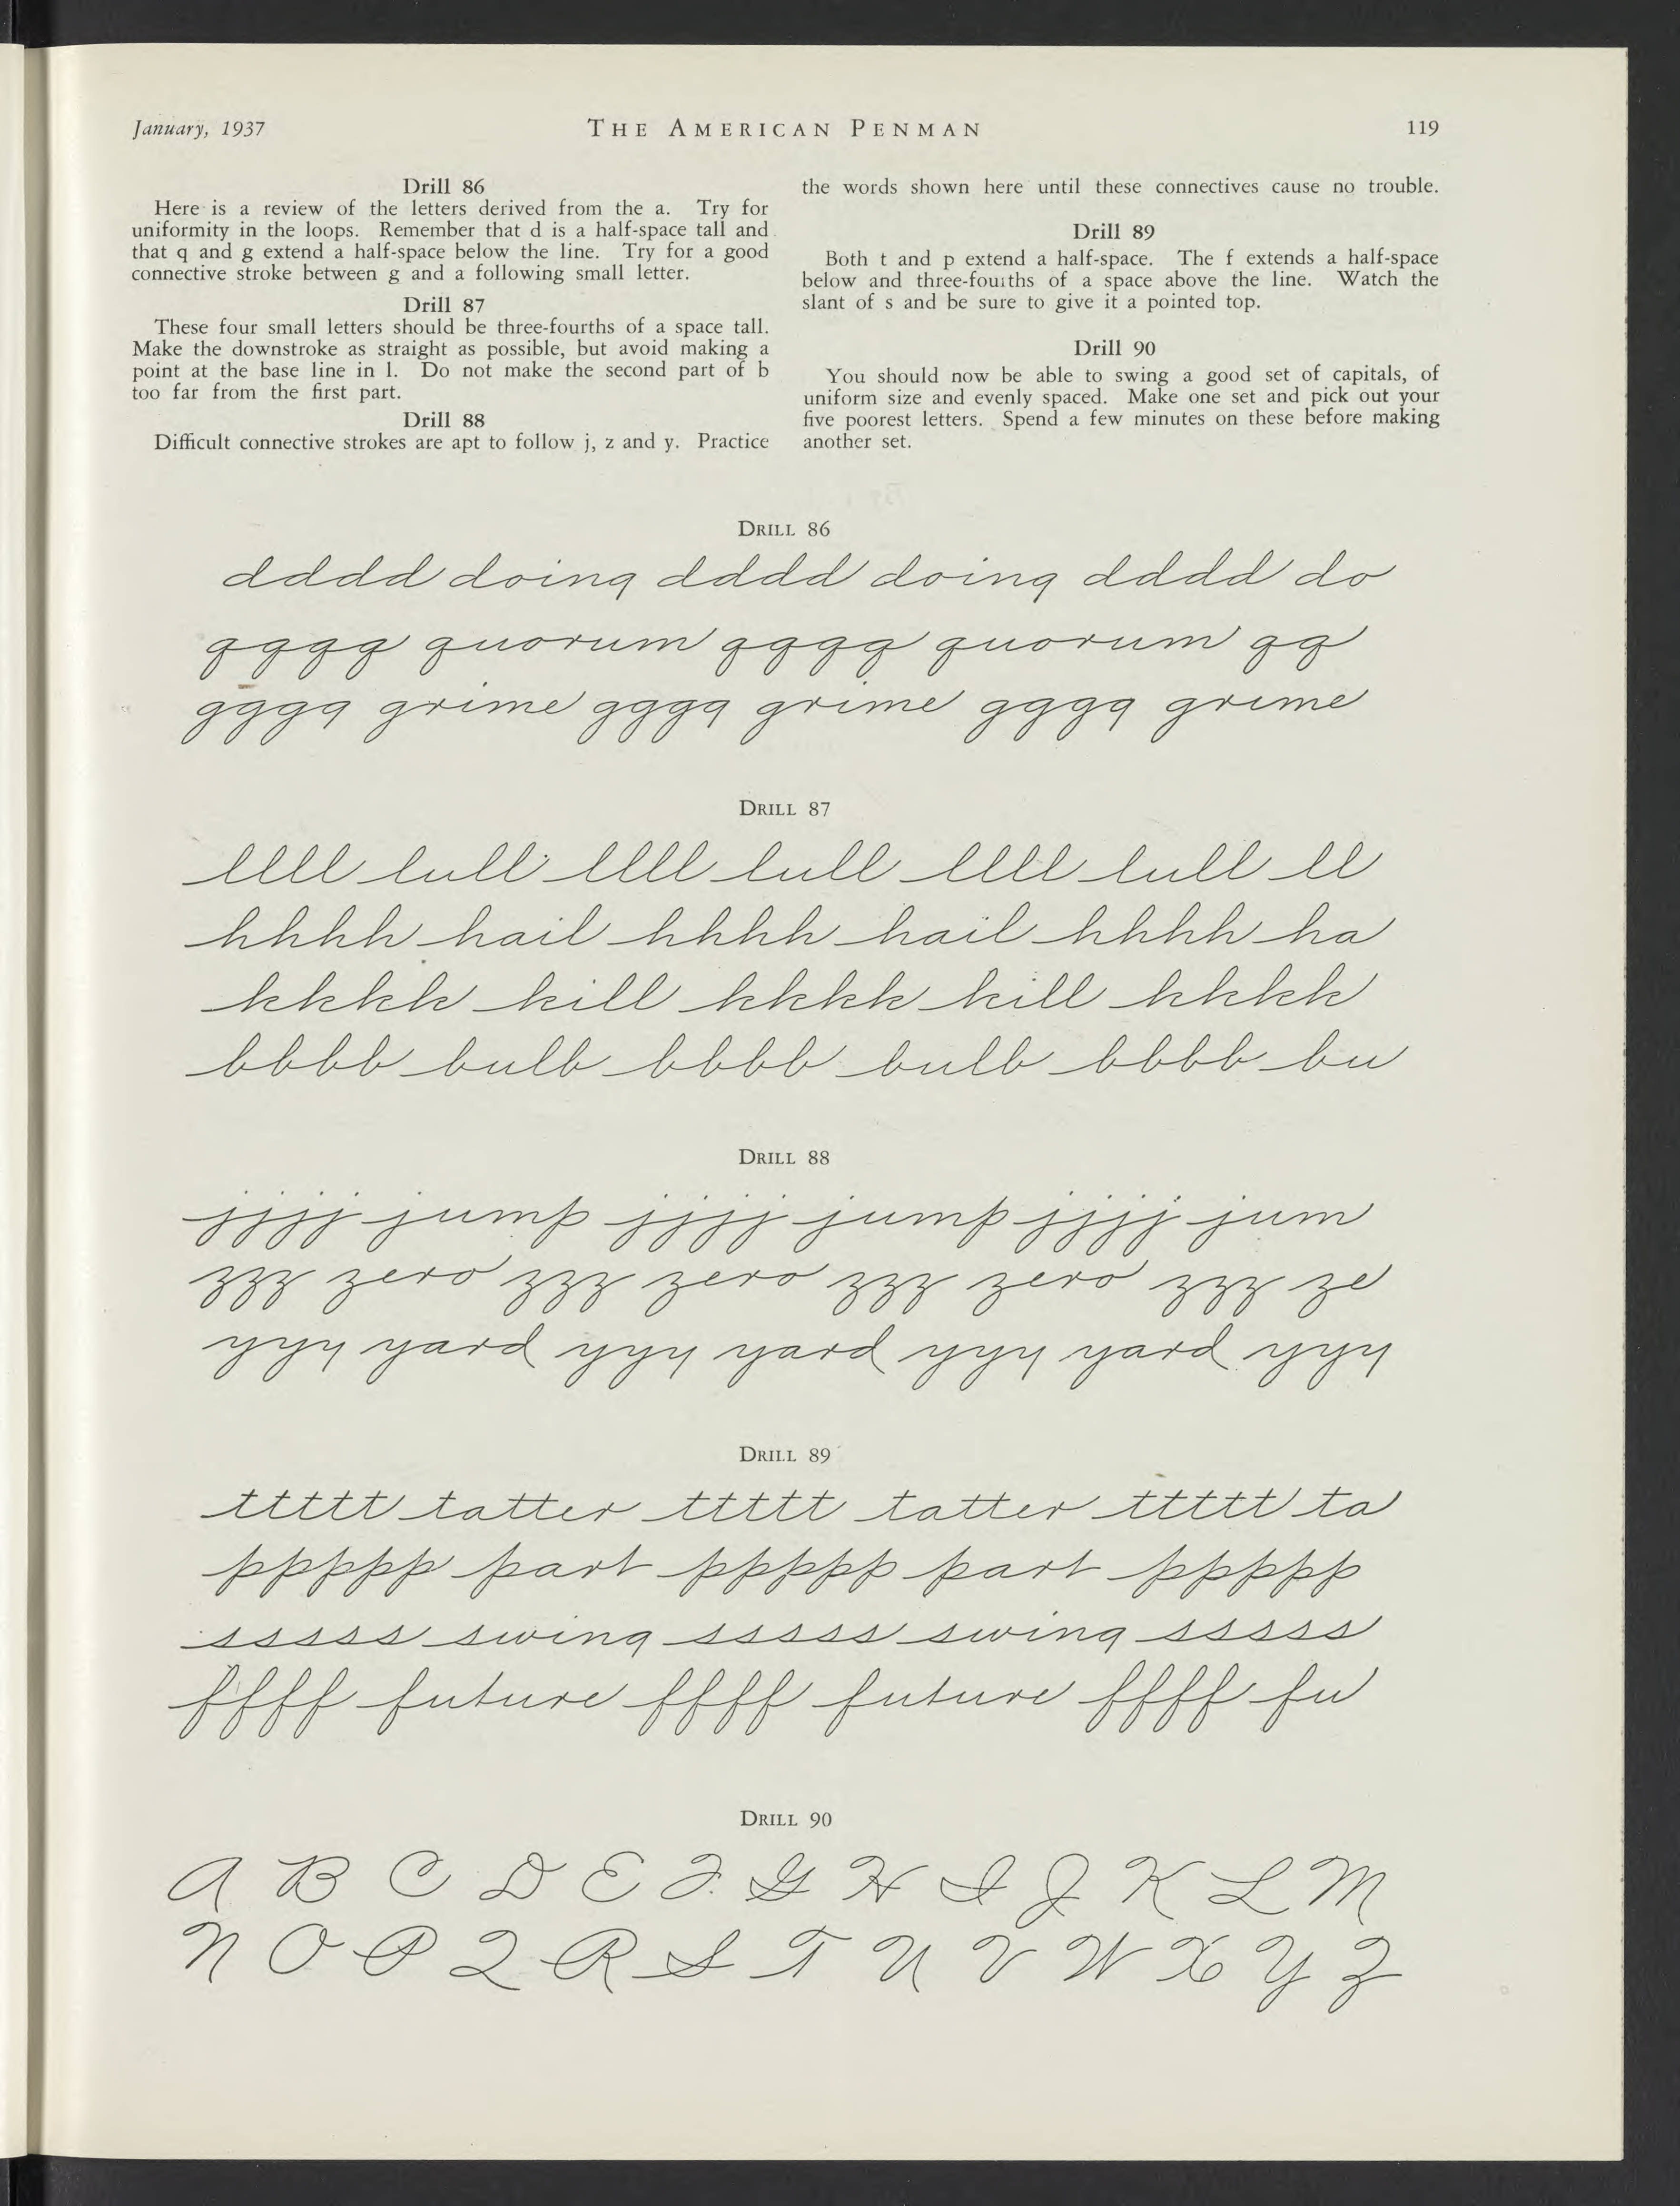 January, 1937
THE AMERICAN PENMAN
119
Drill 86
Here is a review of the letters derived from the a. Try for
uniformity in the loops. Remember that d is a half-space tall and
that q and g extend a half-space below the line. Try for a good
connective stroke between g and a following small letter.
Drill 87
These four small letters should be three-fourths of a space tall.
Make the downstroke as straight as possible, but avoid making a
point at the base line in l. Do not make the second part of b
too far from the first part.
Drill 88
Difficult connective strokes are apt to follow j, z and y. Practice
the words shown here until these connectives cause no trouble.
Drill 89
Both t and p extend a half-space. The f extends a half-space
below and three-fourths of a space above the line. Watch the
slant of s and be sure to give it a pointed top.
Drill 90
You should now be able to swing a good set of capitals, of
uniform size and evenly spaced. Make one set and pick out your
five poorest letters. Spend a few minutes on these before making
another set.
DRILL 86
dddd doing dddd doing dddd do
qqqq quorum qqqq quorum qq
gggg grime gggg grime gggg grime
DRILL 87
llll lull llll lull llll lull ll
hhhh hail hhhh hail hhhh ha
kkkk kill kkkk kill kkkk
bbbb bulb bbbb bulb bbbb bu
DRILL 88
jjjj jump jjjj jump jjjj jum
zzz zero zzz zero zzz zero zzz ze
yyy yard yyy yard yyy yard yyy
DRILL 89
ttttt tatter ttttt tatter ttttt ta
ppppp part ppppp part ppppp
sssss swing sssss swing sssss
ffff future ffff future ffff fu
DRILL 90
A B C D E F G H I J K L M
N O P Q R S T U V W X Y Z